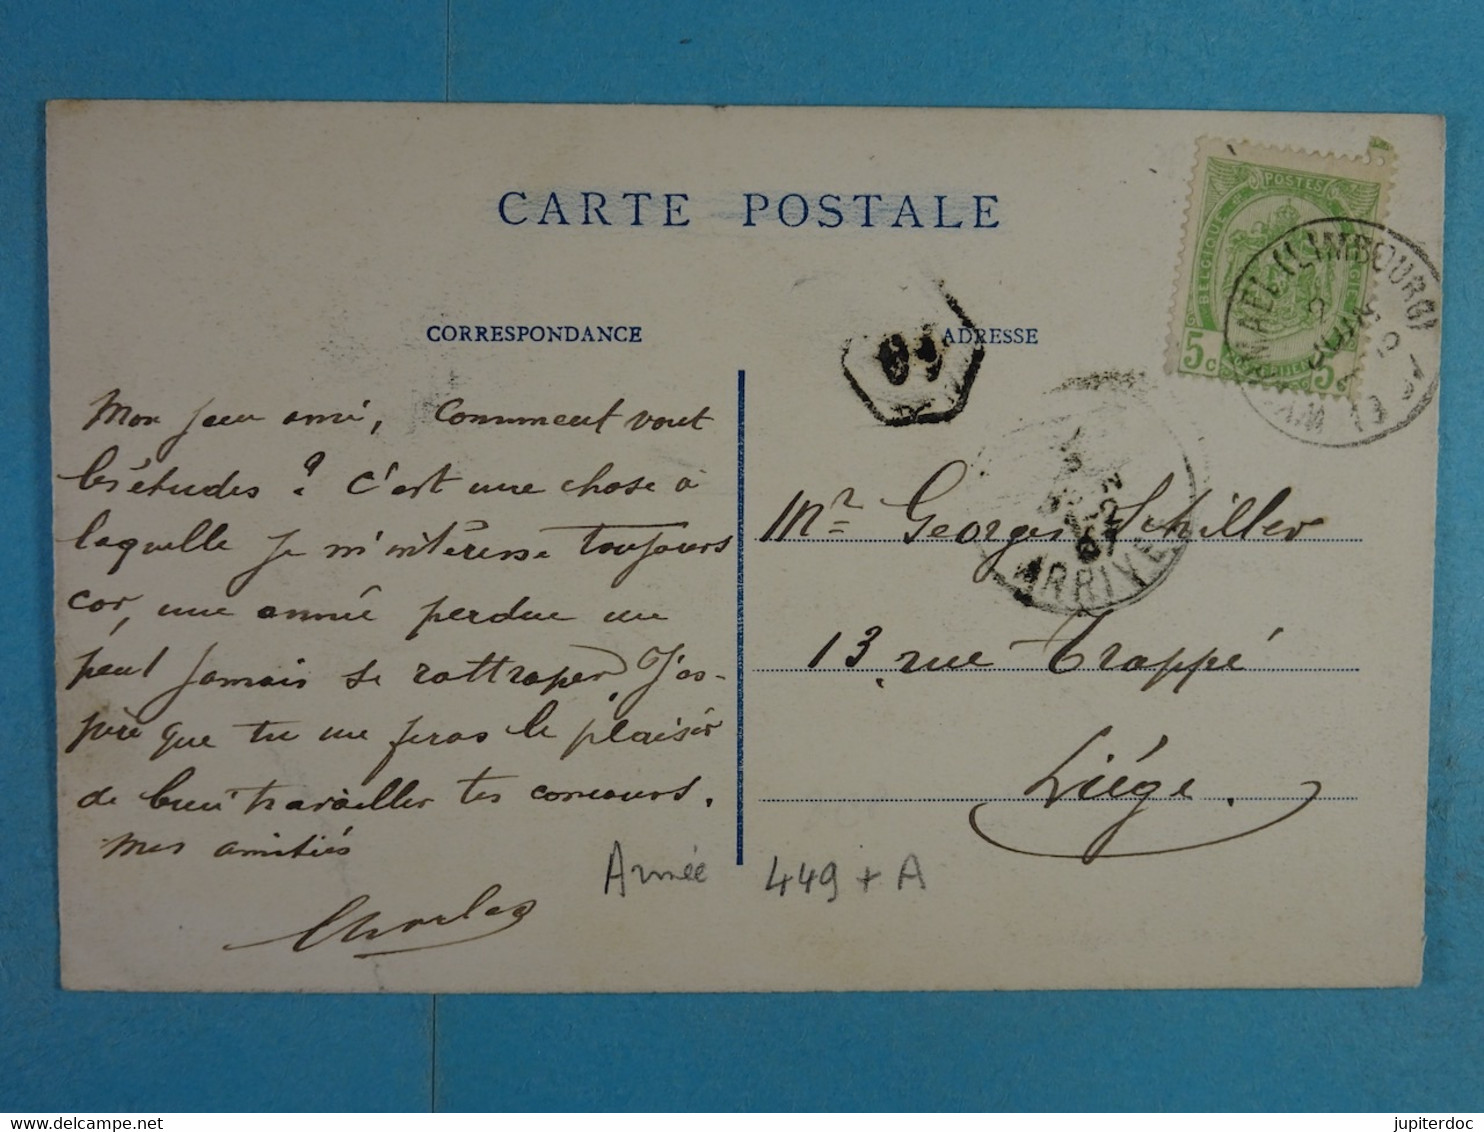 CARTE POSTALE
CORRESPONDANCE
ADRESSE
POSTES
BELGIQUE
5 c 5 c
(LIMBOURG)
JUIN
ARRIVE
07
Mon jeune ami, Comment vont
les études ? C'est une chose à
laquelle je m'intéresse toujours
car, une année perdue ne
peut jamais se rattraper. J'es-
père que tu me feras le plaisir
de bien travailler tes concours.
Mes amitiés
Charles
Mr Georges Schiller
13 rue Trappé
Liége.
Armée 449 + A
jupiterdoc